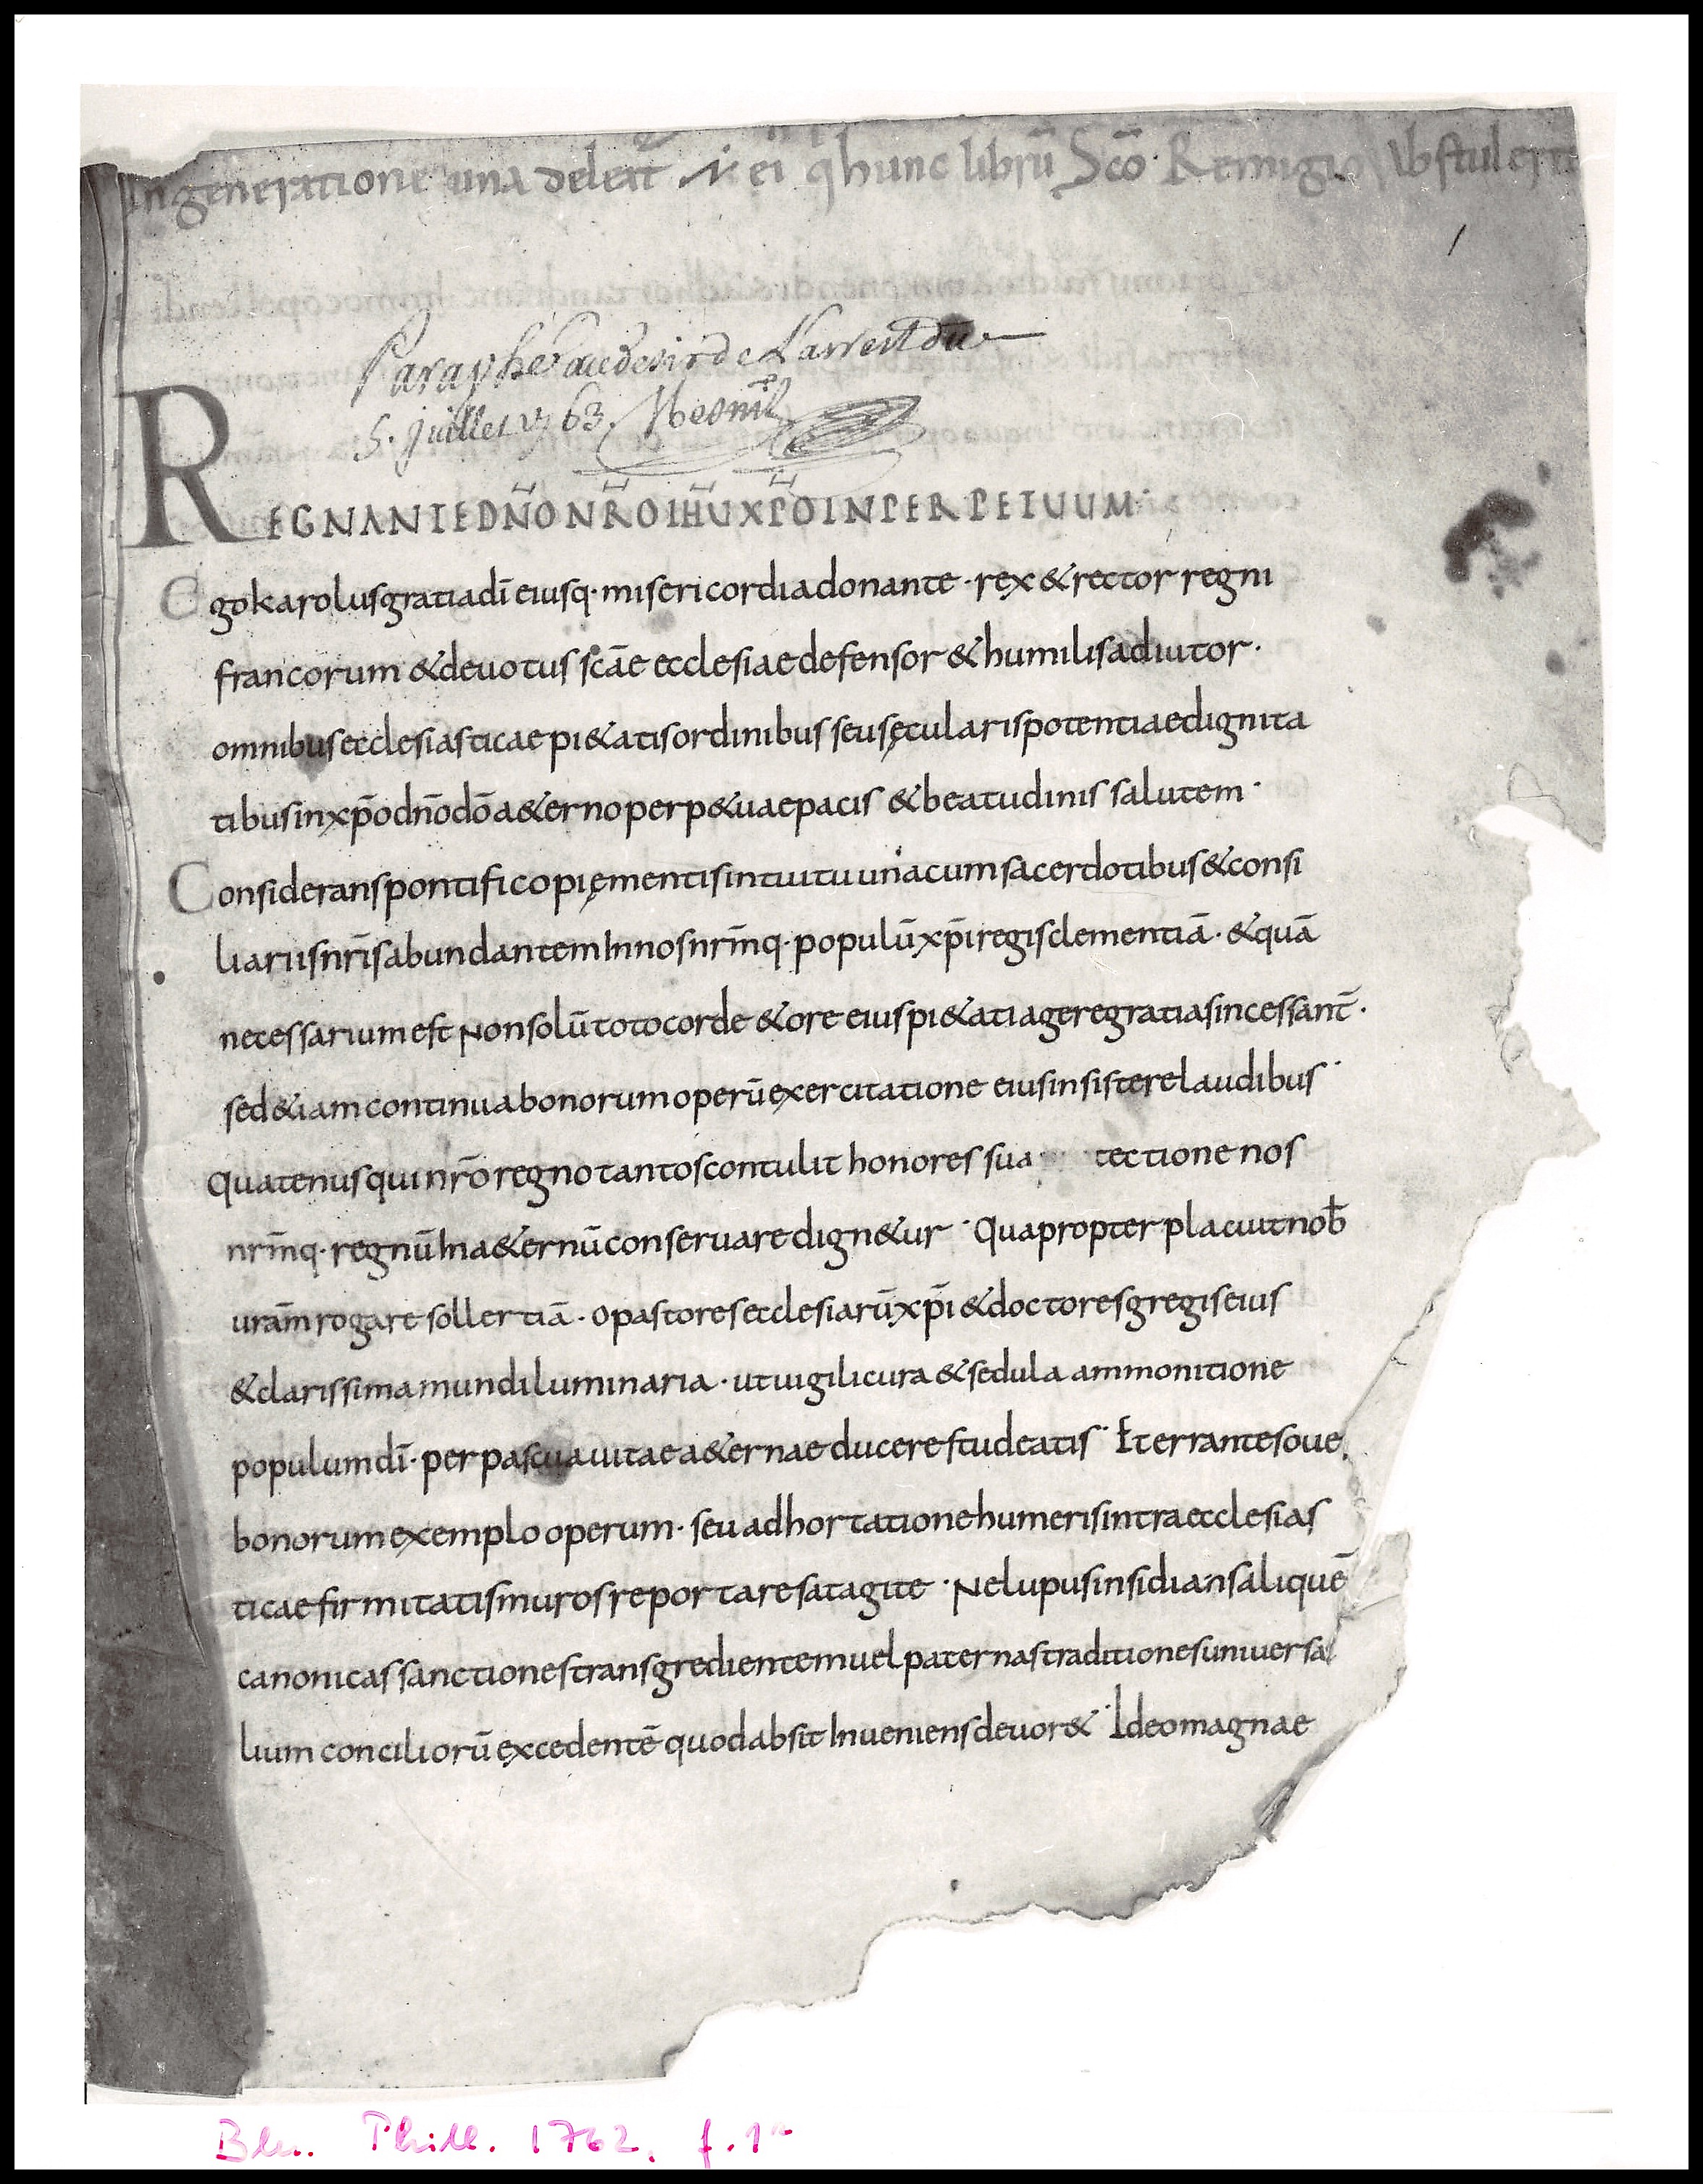 In generatione una deleat̄ n̄ ei q̄ hunc librū Sc̄o Remigio Abstulerit
Paraphé au desir de L'arrest du
5. juillet 1763. Mesnil
REGNANTE DN̄O NR̄O IH̄U XP̄O IN PERPETUUM·
Ego karolus gratia dī eiusq· misericordia donante · rex & rector regni
francorum & deuotus sc̄ae ecclesiae defensor & humilis adiutor ·
omnibus ecclesiasticae pi&atis ordinibus seu sęcularis potentiae dignita
tibus in xp̄o dn̄o dō a&erno perp&uae pacis & beatudinis salutem ·
Considerans pontifico pię mentis intuitu una cum sacerdotibus & consi
liariis nr̄is abundantem In nos nr̄mq· populū xp̄i regis clementiā · & quā
necessarium est Non solū toto corde & ore eius pi&ati agere gratias incessant̄ ·
sed &iam continua bonorum operū exercitatione eius insistere laudibus ·
Quatenus qui nr̄o regno tantos contulit honores sua tectione nos
nr̄mq· regnū In a&ernū conseruare dign&ur · Quapropter placuit nob̄
urām rogare sollertiā · o pastores ecclesiarū xp̄i & doctores gregis eius
& clarissima mundi luminaria · ut uigili cura & sedula ammonitione
populum dī · per pascua uitae a&ernae ducere studeatis · Et errantes oue
bonorum exemplo operum · seu adhortatione humeris intra ecclesias
ticae firmitatis muros reportare satagite · Ne lupus insidians aliquē
canonicas sanctiones transgredientem uel paternas traditiones uniuersa
lium conciliorū excedentē quod absit Inueniens deuor& · Ideo magnae
Bln. Phill. 1762, f. 1r